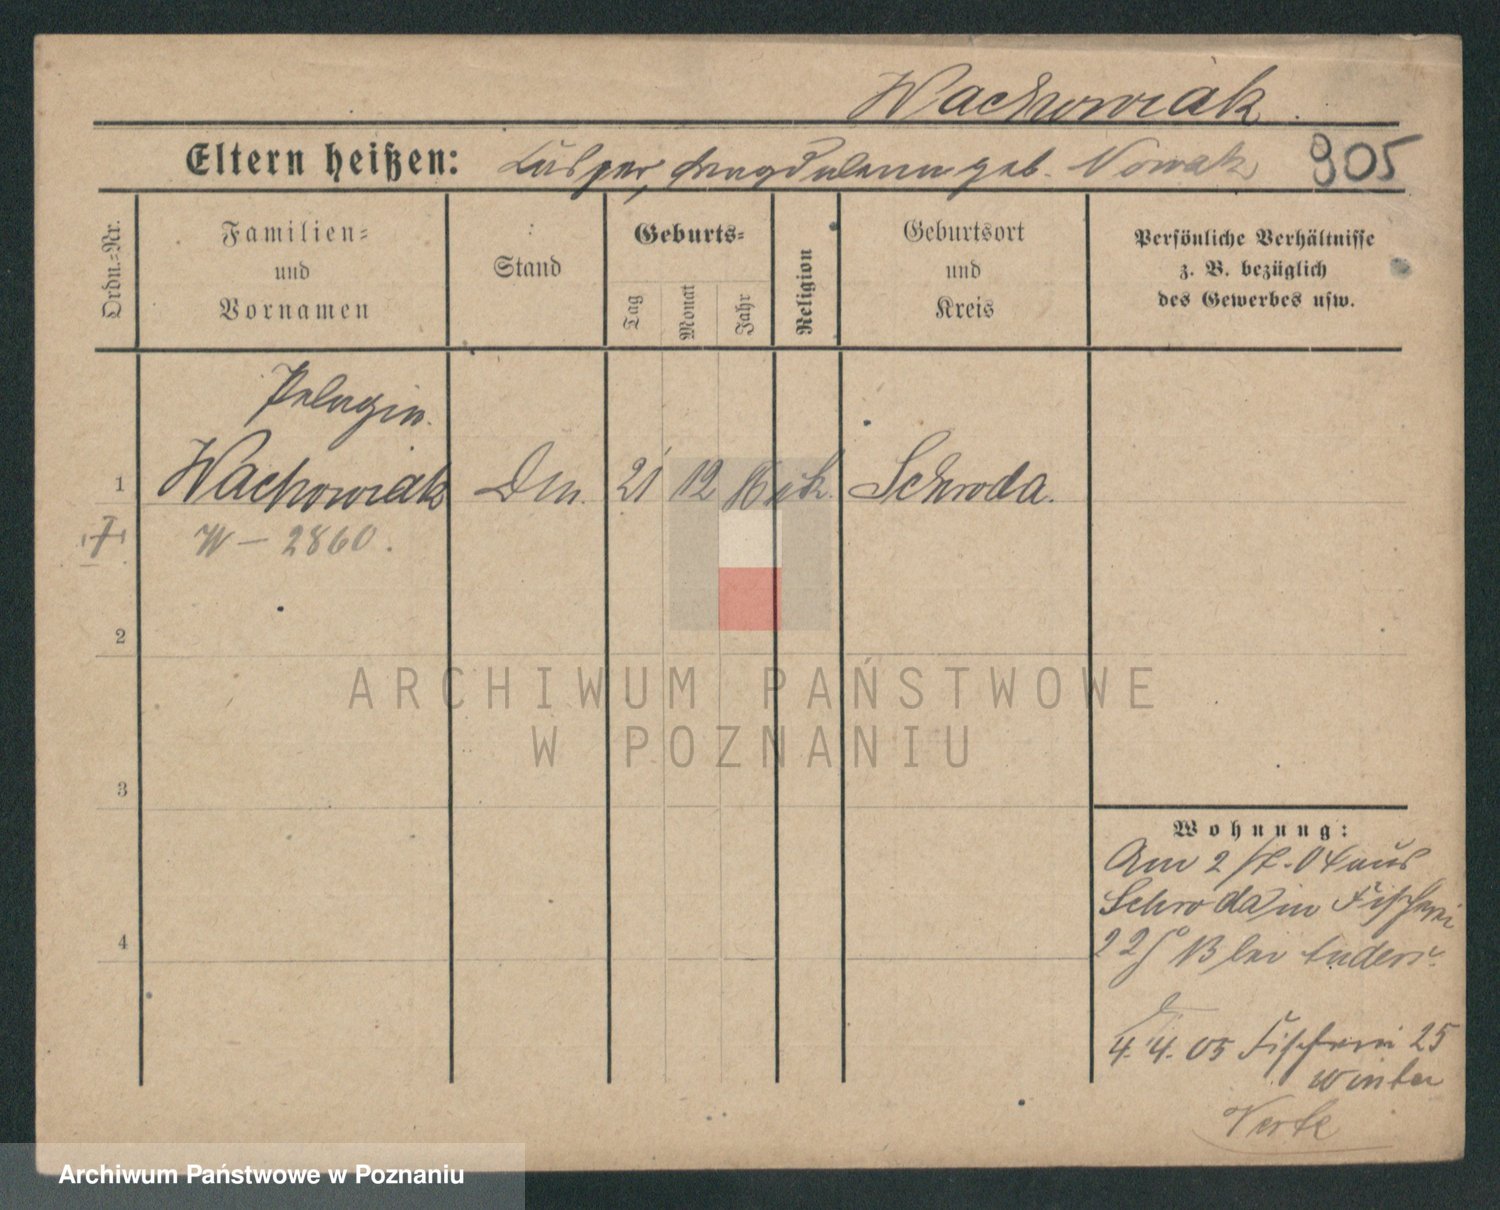 Wachowiak.
Eltern heißen: Kasper, Magdalena geb. Nowak 905
Ordn.=Nr.
Familien=
und
Vornamen
Stand
Geburts=
Tag
Monat
Jahr
Religion
Geburtsort
und
Kreis
Persönliche Verhältnisse
z. B. bezüglich
des Gewerbes usw.
Pelagia
1 Wachowiak 21 12 86 k. Schroda.
W – 2860.
2
3
4
Wohnung:
Am 2/ 04 aus
Schroda in Fischerei
22 B bei
4. 4. 05 Fischerei 25
Winter
Verte
ARCHIWUM PAŃSTWOWE
W POZNANIU
Archiwum Państwowe w Poznaniu